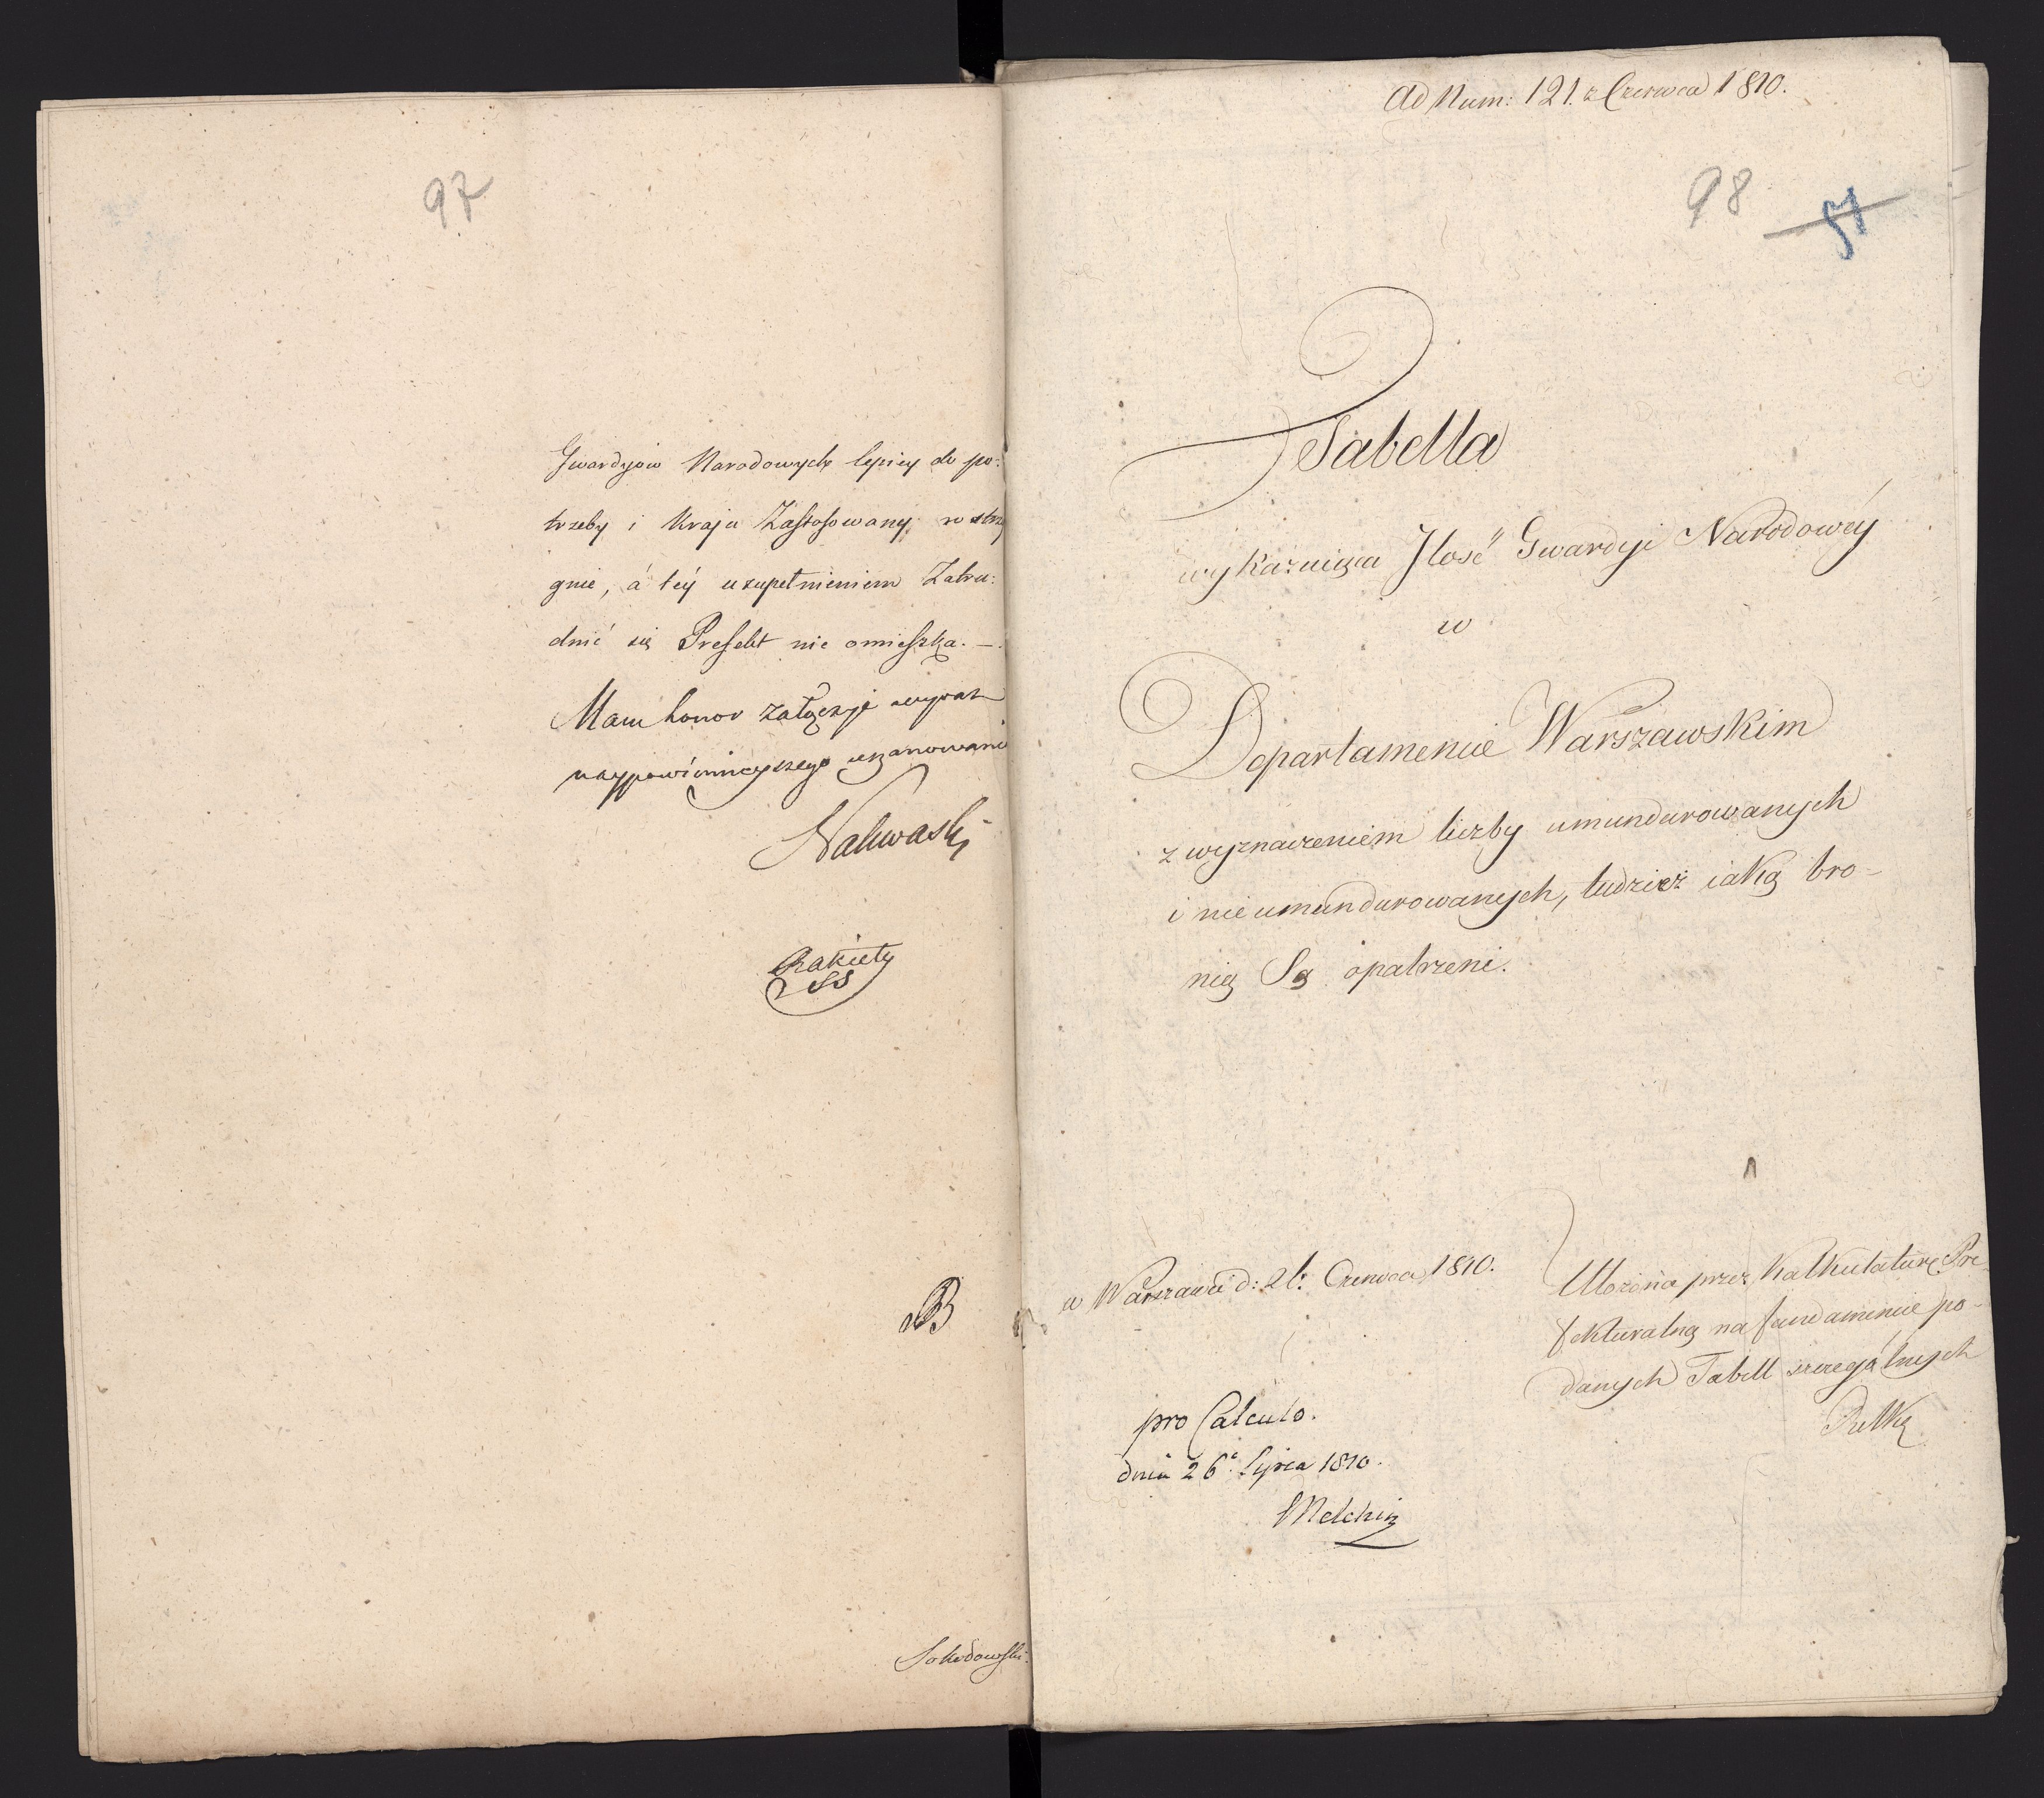 97
Gwardyow Narodowych lepiey do po:
trzeby i Kraju Zastosowany,
gnie, á téÿ uzupełnieniem Zatru:
dnić się Prefekt nie omieszka. —
Mam honor załączyć wyraz
naypowinnieyszego uszanowania
Nakwaski
Rakiety
SS
Sokołowski
Ad Num: 121. z Czerwca 1810.
98
51
Tabella
wykazuiąca Jlość Gwardyi Narodowéy
w
Departamencie Warszawskim
z wyznaczeniem liczby umundurowanych
i nie umundurowanych, tudzież iaką bro-
nią Są opatrzeni.
w Warszawie d: 21: Czerwca 1810.
Ułożona przez Kalkulaturę Pre-
fekturalną na fundamencie po-
danych Tabell szczegółnych
pro Calculo.
dnia 26. Lipca 1810.